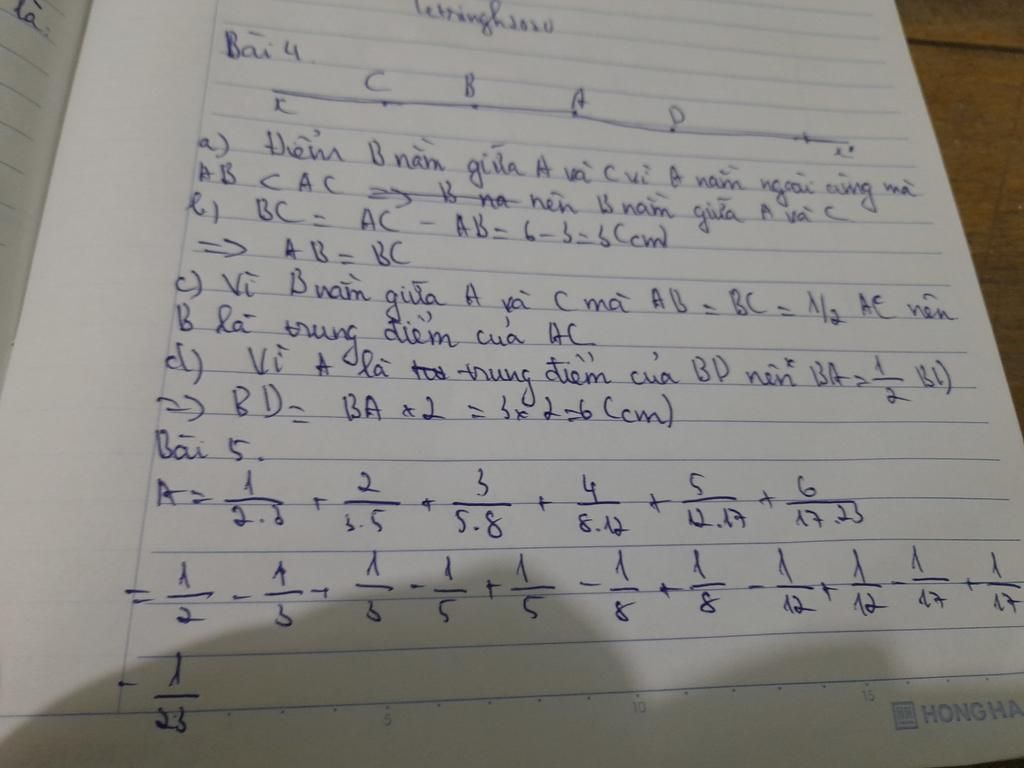 là.
letranghs2020
Bài 4.
C B A D
x x'
a) Điểm B nằm giữa A và C vì A nằm ngoài cùng mà
AB < AC => B na nên B nằm giữa A và C
b) BC = AC - AB = 6 - 3 = 3 (cm)
=> AB = BC
c) Vì B nằm giữa A và C mà AB = BC = 1/2 AC nên
B là trung điểm của AC
d) Vì A là trung điểm của BD nên BA = 1/2 BD
=> BD = BA × 2 = 3 × 2 = 6 (cm)
Bài 5.
A = 1/2.3 + 2/3.5 + 3/5.8 + 4/8.12 + 5/12.17 + 6/17.23
= 1/2 - 1/3 + 1/3 - 1/5 + 1/5 - 1/8 + 1/8 - 1/12 + 1/12 - 1/17 + 1/17
- 1/23
5 10 15
HONG HA